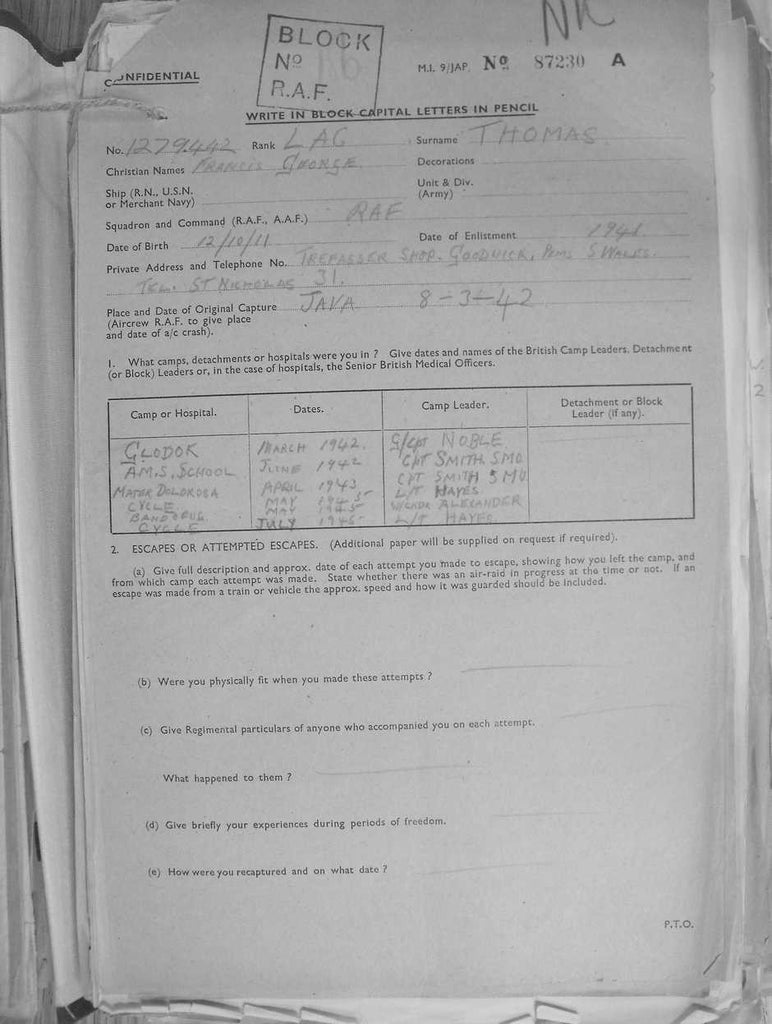 NR
BLOCK
Nº
R.A.F.
CONFIDENTIAL
M.I. 9/JAP. Nº 87230 A
WRITE IN BLOCK CAPITAL LETTERS IN PENCIL
No. 1279442 Rank LAC Surname THOMAS
Christian Names FRANCIS GEORGE Decorations
Ship (R.N., U.S.N. or Merchant Navy) Unit & Div. (Army)
Squadron and Command (R.A.F., A.A.F.) RAF
Date of Birth 12/10/11 Date of Enlistment 1941.
Private Address and Telephone No. TREFASSER SHOP. GOODWICK, PEMS S WALES.
TEL. ST NICHOLAS 31.
Place and Date of Original Capture JAVA 8-3-42
(Aircrew R.A.F. to give place
and date of a/c crash).
1. What camps, detachments or hospitals were you in ? Give dates and names of the British Camp Leaders, Detachment
(or Block) Leaders or, in the case of hospitals, the Senior British Medical Officers.
Camp or Hospital. Dates. Camp Leader. Detachment or Block Leader (if any).
GLODOK MARCH 1942. G/CPT NOBLE
A.M.S. SCHOOL JUNE 1942 CPT SMITH SMO
MATER DOLOROSA APRIL 1943 CPT SMITH SMO
CYCLE MAY 1945 L/T HAYES
BANDOENG MAY 1945 W/CMDR ALEXANDER
CYCLE JULY 1945 L/T HAYES
2. ESCAPES OR ATTEMPTED ESCAPES. (Additional paper will be supplied on request if required).
(a) Give full description and approx. date of each attempt you made to escape, showing how you left the camp, and
from which camp each attempt was made. State whether there was an air-raid in progress at the time or not. If an
escape was made from a train or vehicle the approx. speed and how it was guarded should be included.
(b) Were you physically fit when you made these attempts ?
(c) Give Regimental particulars of anyone who accompanied you on each attempt.
What happened to them ?
(d) Give briefly your experiences during periods of freedom.
(e) How were you recaptured and on what date ?
P.T.O.